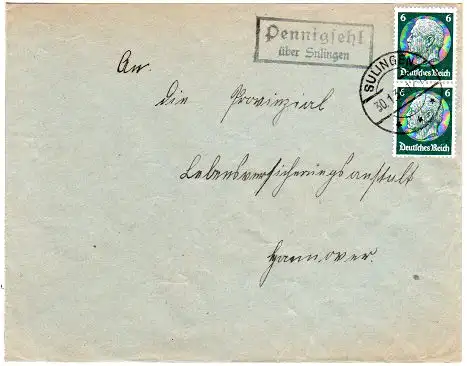 Pennigsehl
über Sulingen
6
Deutsches Reich
6
Deutsches Reich
SULINGEN
30.1.
An.
die Provinzial
Lebensversicherungsanstalt
Hannover.